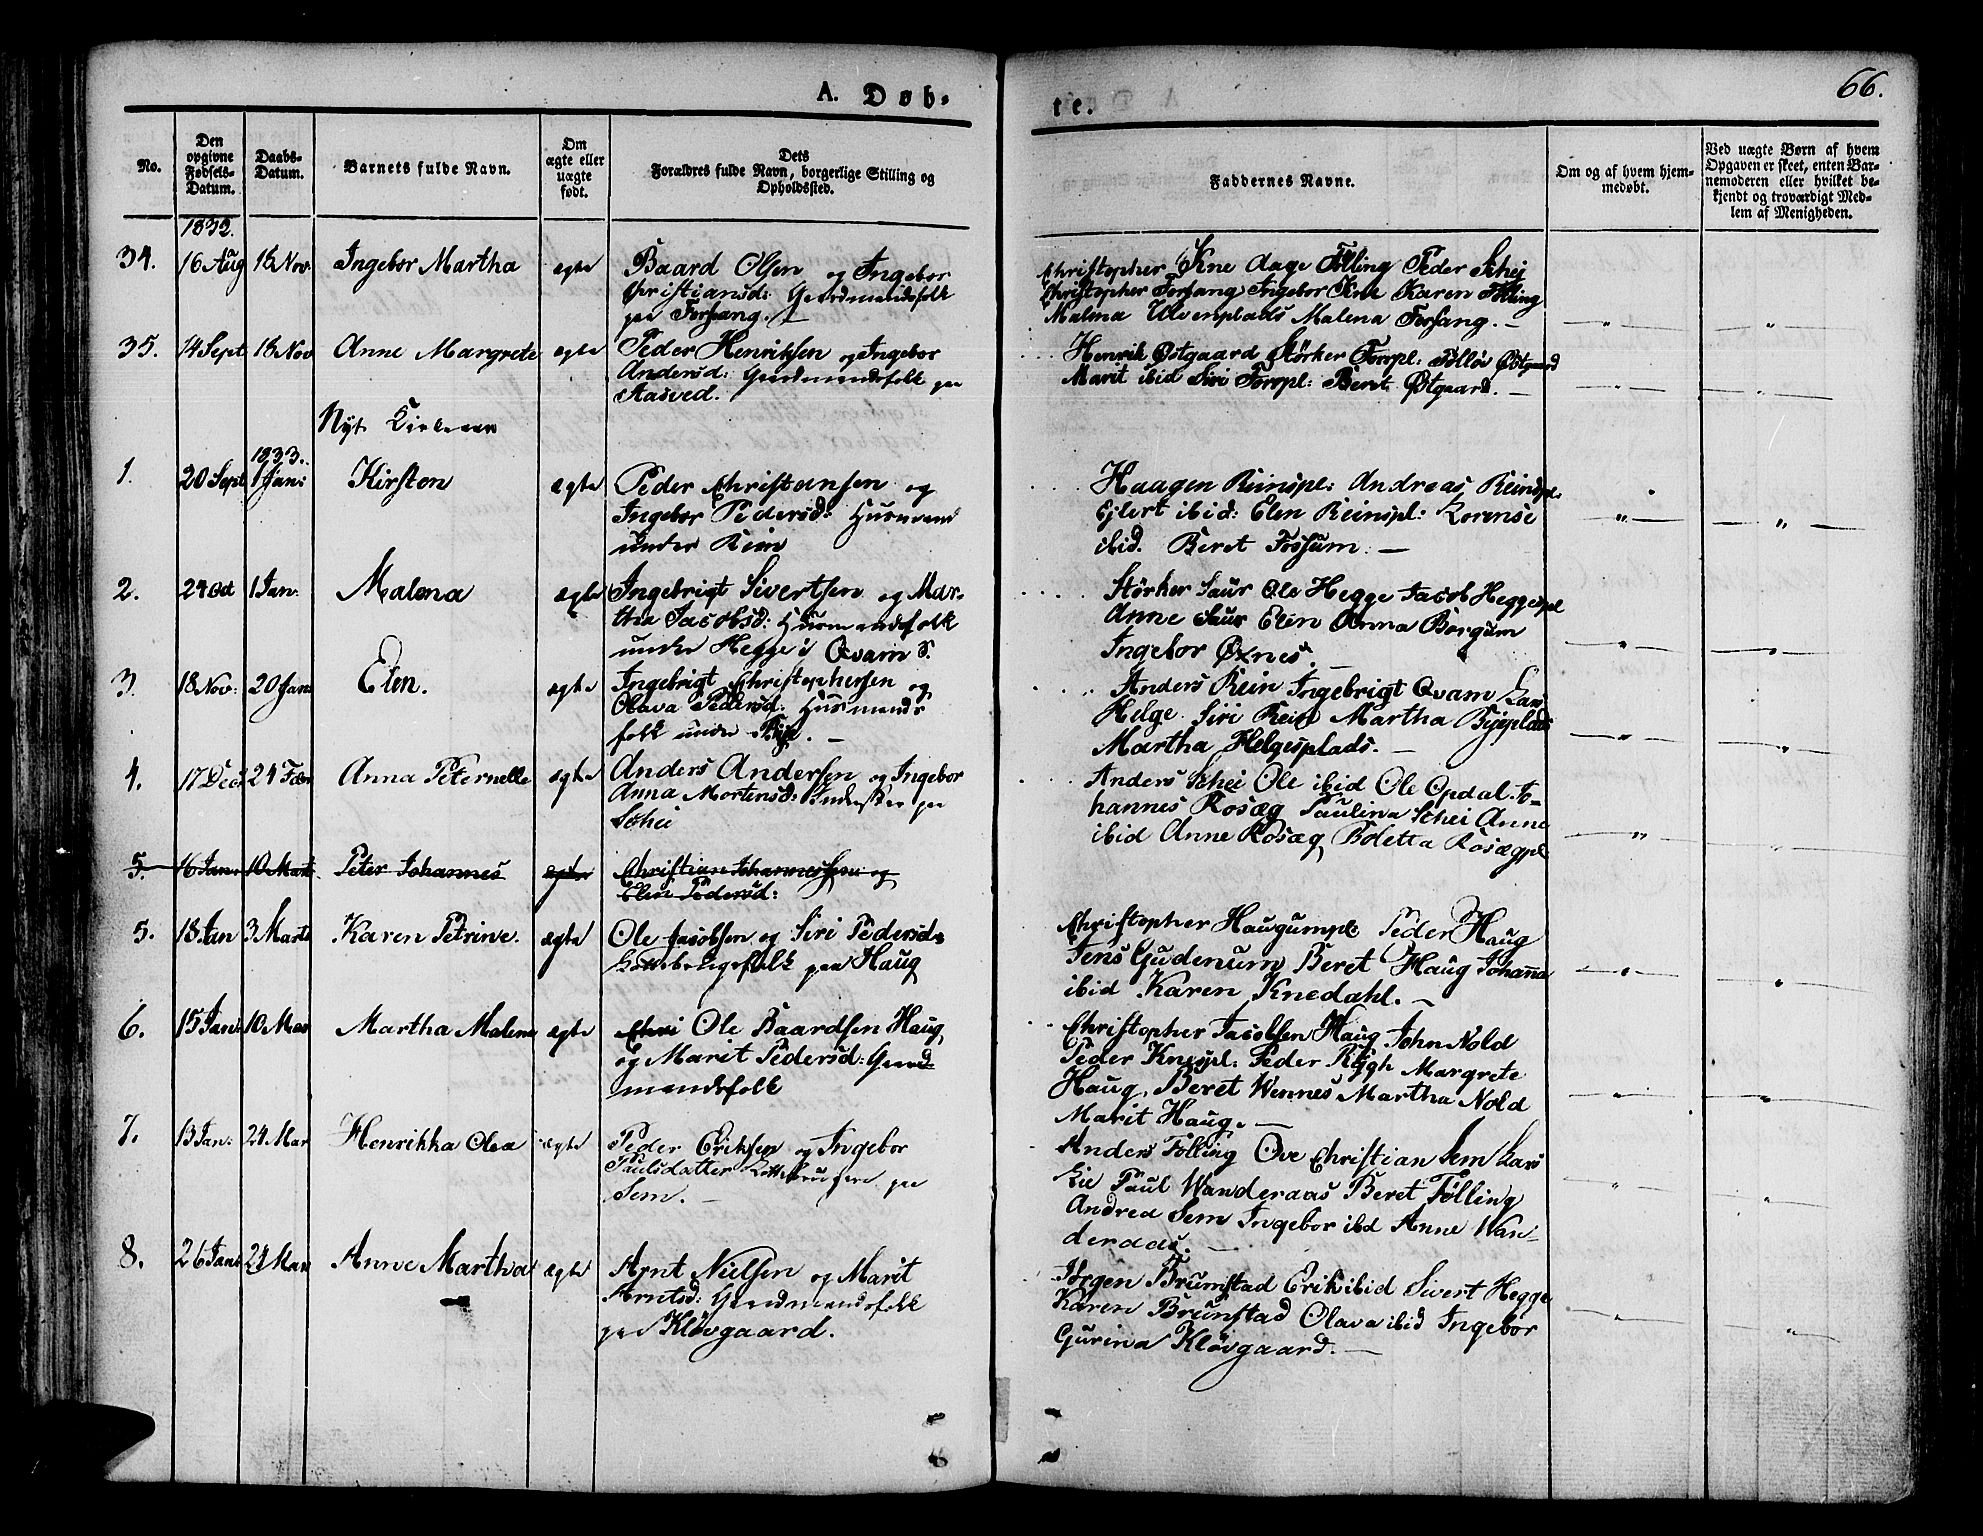 A. Døb-
te.
66.
No.
Den
opgivne
Fødsels-
Datum.
Daabs-
Datum.
Barnets fulde Navn.
Om
ægte eller
uægte
født.
Dets
Forældres fulde Navn, borgerlige Stilling og
Opholdssted.
Faddernes Navne.
Om og af hvem hjem-
medøbt.
Ved uægte Børn af hvem
Opgaven er skeet, enten Bar-
nemoderen eller hvilket be-
kjendt og troværdigt Med-
lem af Menigheden.
1832.
34. 16 Aug 18 Nov. Ingebor Martha ægte Baard Olsen og Ingebor
Christiansd: Gaardmandsfolk
paa Forfang.
Christopher Kne Aage Følling Peder Schei
Christopher Forfang Ingebor Kne Karen Følling
Malena Ulvenplads Malena Forfang. —
35. 14 Sept 18 Nov Anne Margrete ægte Peder Henriksen og Ingebor
Andersd: Gaardmandsfolk paa
Aasved.
Henrik Østgaard Størker Forrpl: Følløv Østgaard
Marit ibid Siri Forrpl: Beret Østgaard. —
Nyt
1833.
1. 20 Sept 1 Jan: Kirsten ægte Peder Christansen og
Ingebor Pedersd: Huusmand
under Rein
Haagen Reinspl: Andreas Reinspl:
Ejlert ibid: Elen Reinspl: Lorense
ibid. Beret Fossum. —
2. 24 Oct 1 Jan. Malena ægte Ingebrigt Sivertsen og Mar-
tha Jacobsd: Huusmandsfolk
under Hegge i Qvam S.
Størker Saur Ole Hegge Jacob Heggespl
Anne Saur Elen Anna Borgum
Ingebor Øxnes. —
3. 18 Nov: 20 Jan Elen. ægte Ingebrigt Christophersen og
Olava Pedersd. Huusmands
folk under —
Anders Rein Ingebrigt Qvam Lars
Helge. Siri Rein Martha Byeplads
Martha Helgesplads. —
4. 17 Dec 24 Febr Anna Peternelle ægte Anders Andersen og Ingebor
Anna Mortensd: Inderster paa
Schei
Anders Schei Ole ibid Ole Opdal Jo-
hannes Rosæg Paulina Schei Anne
ibid Anne Rosæg Boletta Rosægpl
5. 16 Jan. 10 Marts Peter Johannes ægte Christian Johannessen og
Elen Pedersd:
5. 18 Jan 3 Marts Karen Petrine. ægte Ole Jacobsen og Siri Pedersd:
paa Haug
Christopher Haugumpl: Peder Haug
Jens Gudenum Beret Haug Johanna
ibid Karen Knedahl. —
6. 15 Jan: 10 Mar Martha Malene ægte Chri Ole Baardsen Haug
og Marit Pedersd: Gaard
mandsfolk
Christopher Jacobsen Haug John Nold
Peder Knepl. Peder Rygh Margrete
Haug. Beret Wennes Martha Nold
Marit Haug. —
7. 13 Jan: 24. Mar Henrikka Olea ægte Peder Eriksen og Ingebor
Paulsdatter paa
Sem. —
Anders Følling Ove Christian Sem Lars
Lie Paul Wanderaas Beret Følling
Andrea Sem Ingebor ibd Anne Wan-
deraas. —
8. 26 Jan: 24 Mar Anne Martha ægte Arnt Nielsen og Marit
Arntsd: Gaardmandsfolk
paa Kløvgaard.
Jørgen Brunstad Erik ibid Sivert Hegge
Karen Brunstad Olava ibid Ingebor
Gurina Kløvgaard. —